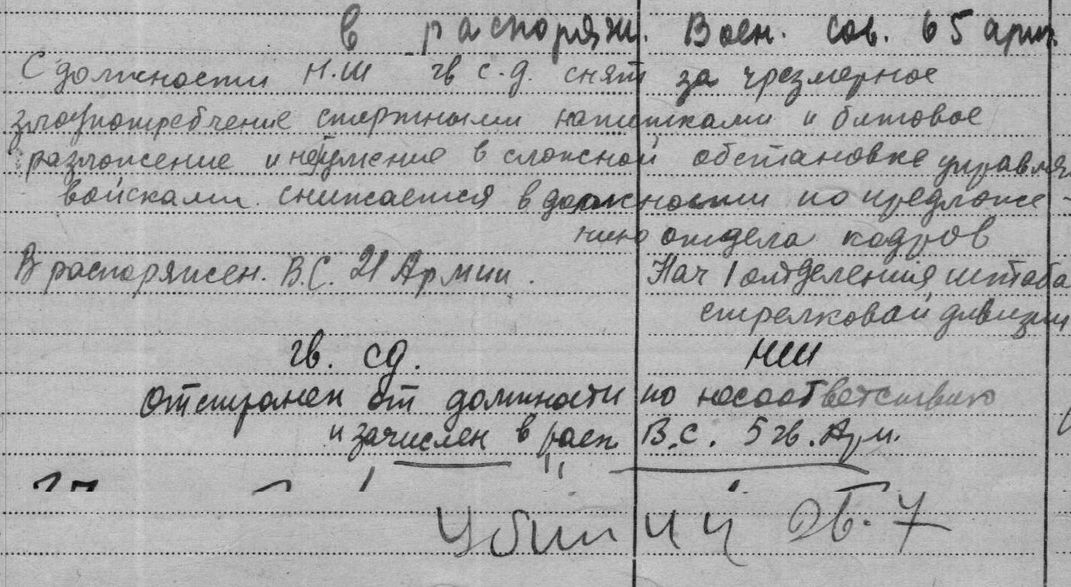 в распоряж. Воен. Сов. 65 арм.
С должности Н.Ш гв с.д. снят за чрезмерное
злоупотребление спиртными напитками и бытовое
разложение и неумение в сложной обстановке управля
войсками. снижается в должности по предложе-
нию отдела кадров
В распоряжен. В.С. 21 Армии. Нач 1 отделения штаба
стрелковой дивизии
гв. сд. НШ
отстранен от должности по несоответствию
и зачислен в расп В.С. 5 гв. Арм.